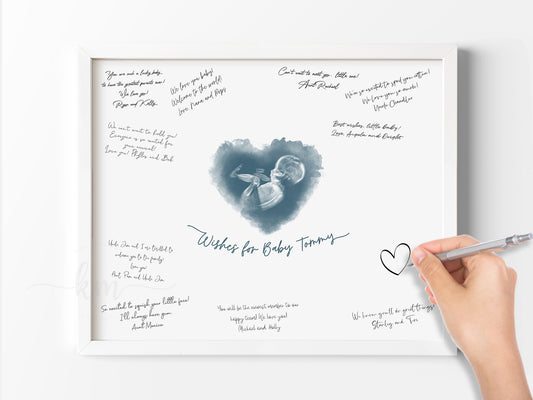 You are such a lucky baby
to have the greatest parents ever!
We love you!
Ross and Kelly
We love you baby!
Welcome to the world!
Love, Nana and Pops
Can't wait to meet you, little one!
Aunt Rachel
We're so excited to spoil you rotten!
We love you so much!
Uncle Chandler
Best wishes, little baby!
Love, Angela and Dwight
We can't wait to hold you!
Everyone is so excited for
your arrival!
Love you! Phyllis and Bob
Wishes for Baby Tommy
Uncle Jim and I are thrilled to
welcome you to the family!
Love you!
Aunt Pam and Uncle Jim
km
So excited to squish your little face!
I'll always have yours
Aunt Monica
You will be the newest member to our
happy team! We love you!
Michael and Holly
We know you'll do great things!
Stanley and